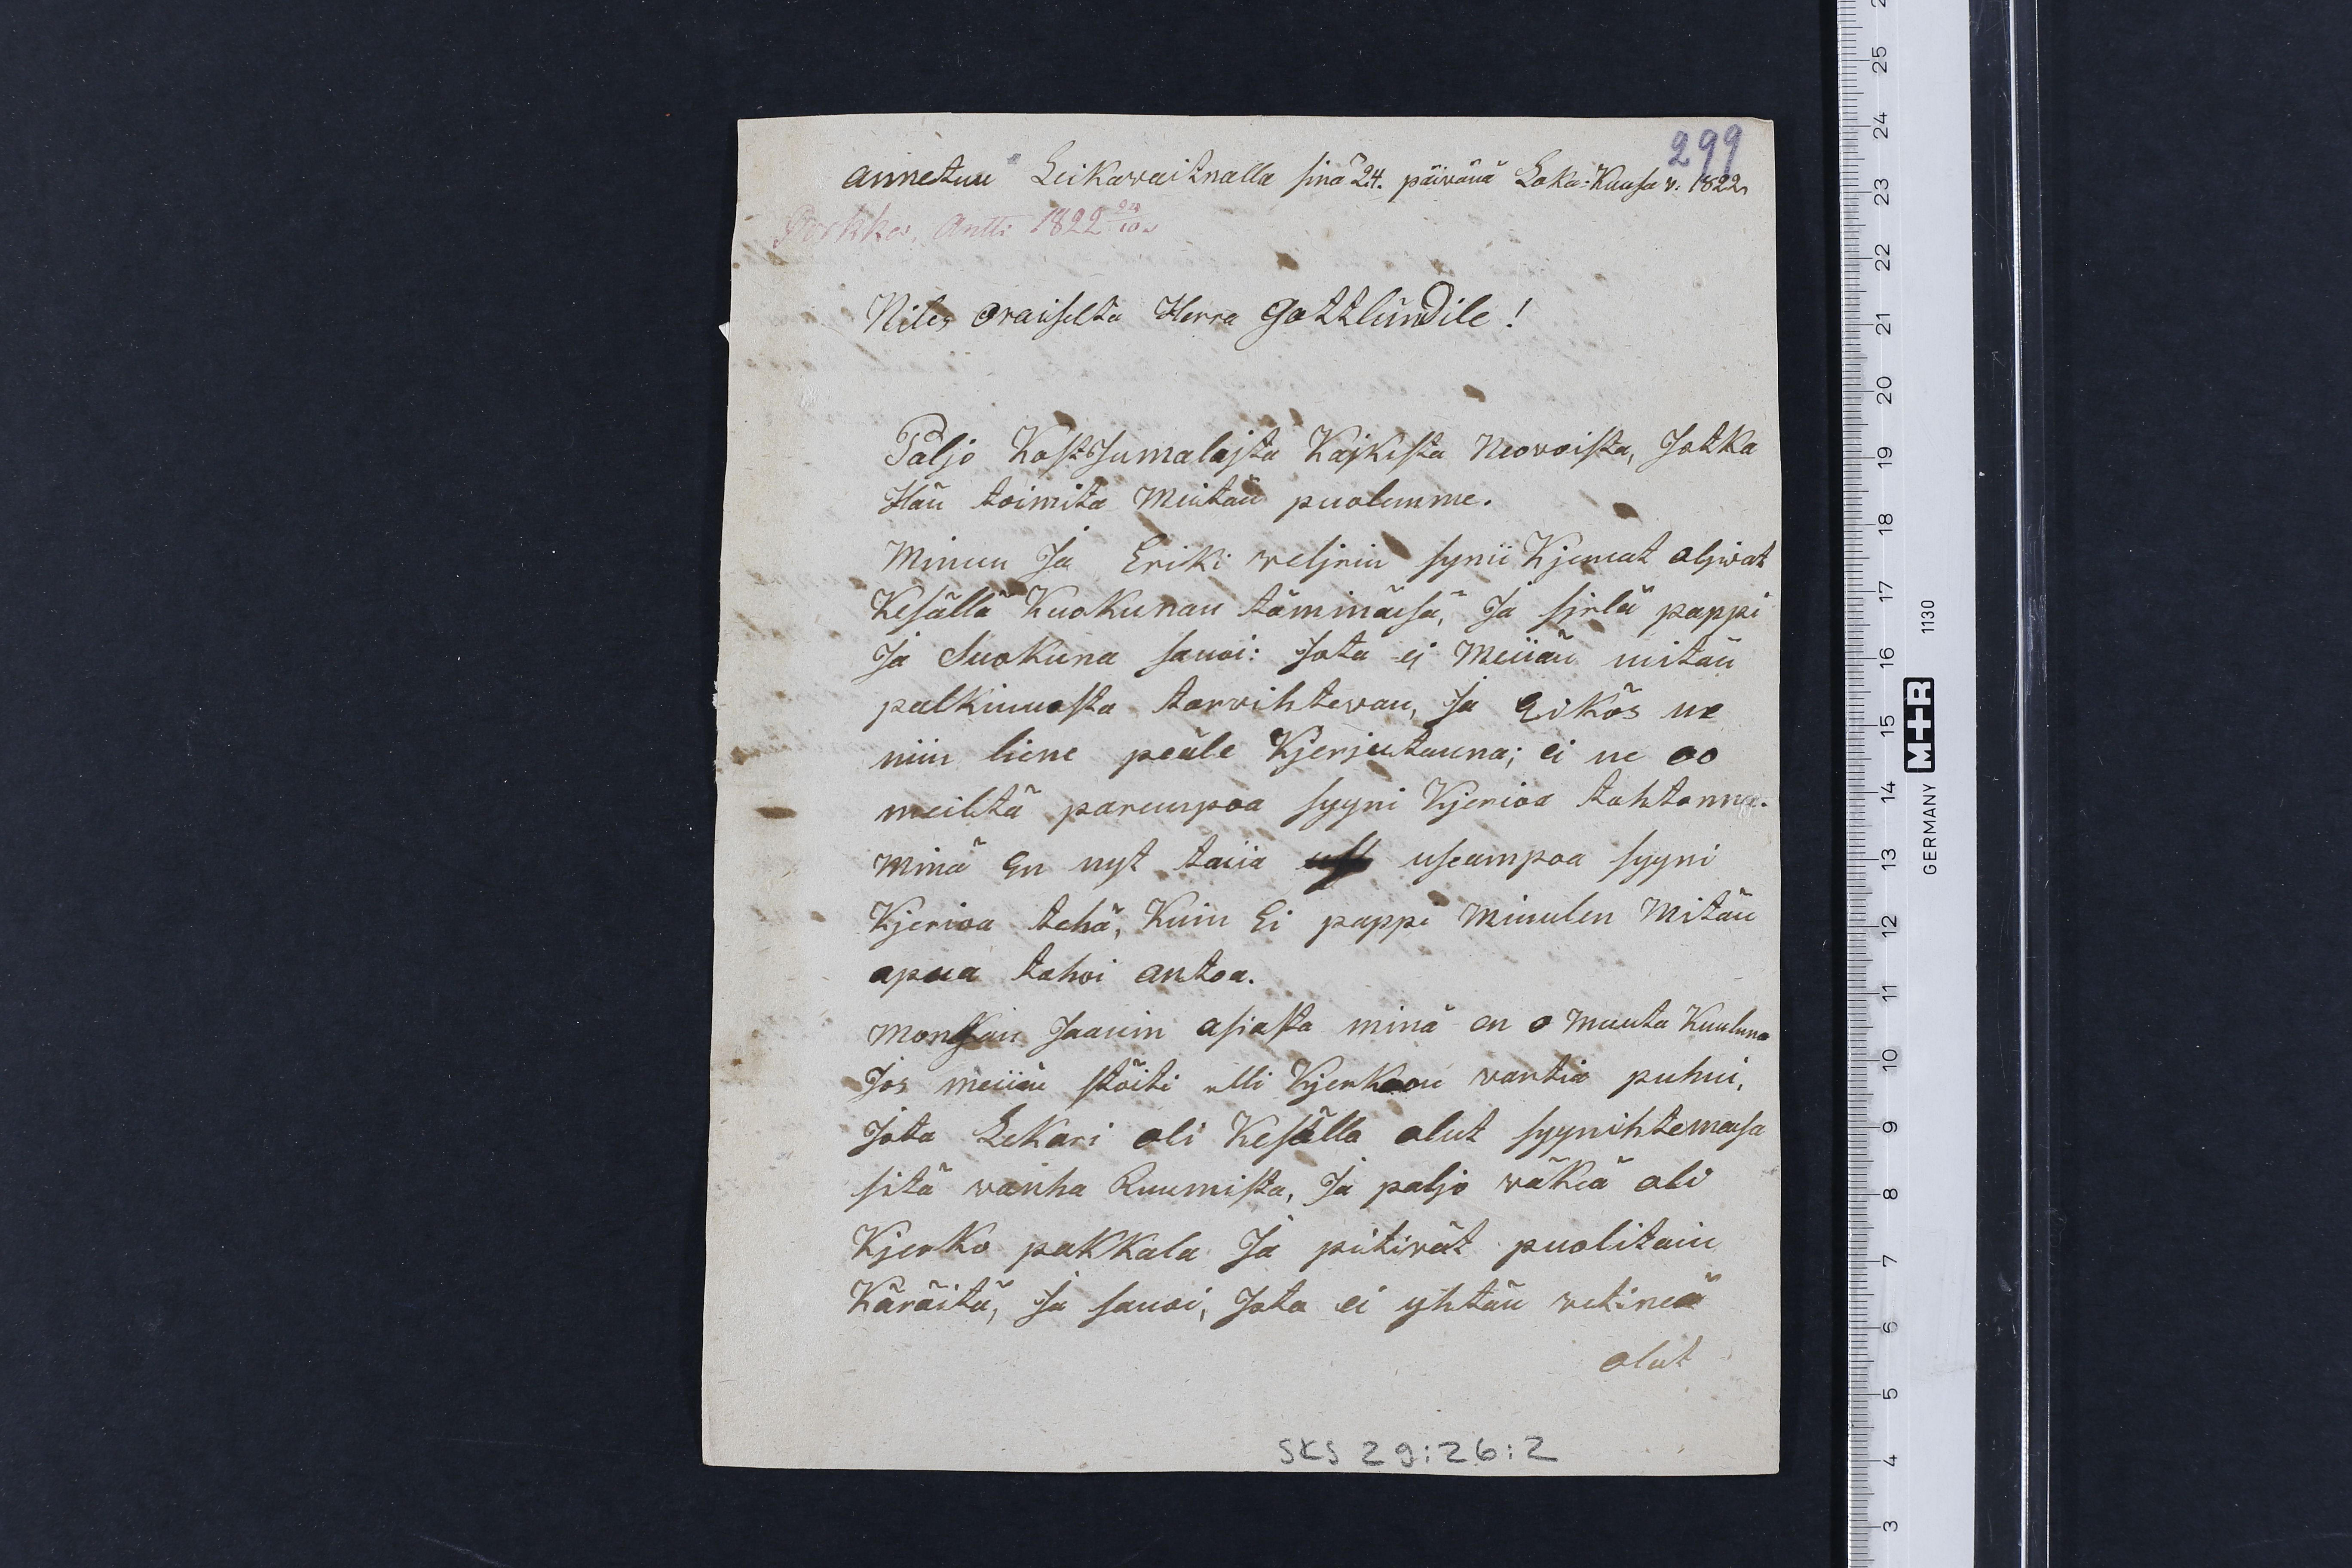 299
annetuu Leikavaitnalla sinä 24. päivänä Loka-Kuusa v. 1822
Porkka, Antti 1822 24/10
Niles oraiselta Herra Gottlundile!
Paljo Kost Jumalajsta Kajkista Neovoista, Jotka
Hän toimita Meitän puolemme.
Minun Ja Eriki veljnin synii Kjereat oljvat
Kesällä Kuokunan täminäesä, Ja sjelä pappi
Ja Suokuna sanoi: Jota ej Meiiän mitän
palkinuosta tarvihtevan, Ja Eikös ne
niin liene peäle Kjerjutanna; ei ne oo
meiltä parempoa syyni Kjerioa tahtonna.
Minä En nyt taiia useampoa syyni
Kjerioa tehä, Kuin Ei pappi Minulen Mitän
apua tahoi antoa.
Jaanin asiasta minä en o Muuta Kuuluna
Jos meiiän stöiti elli Kjerkoon vartia puhui,
Jota Lekari oli Kesälla olut syynihtemäsä
sitä vanha Ruumista, Ja paljo väkeä oli
Kjerko pakkala Ja piitivät puolitain
Käräitä, Ja sanoi, Jota ei yhtän vetineä
olut
SKS 29:26:2
3 4 5 6 7 8 9 10 11 12 13 14 15 16 17 18 19 20 21 22 23 24 25
GERMANY M+R 1130